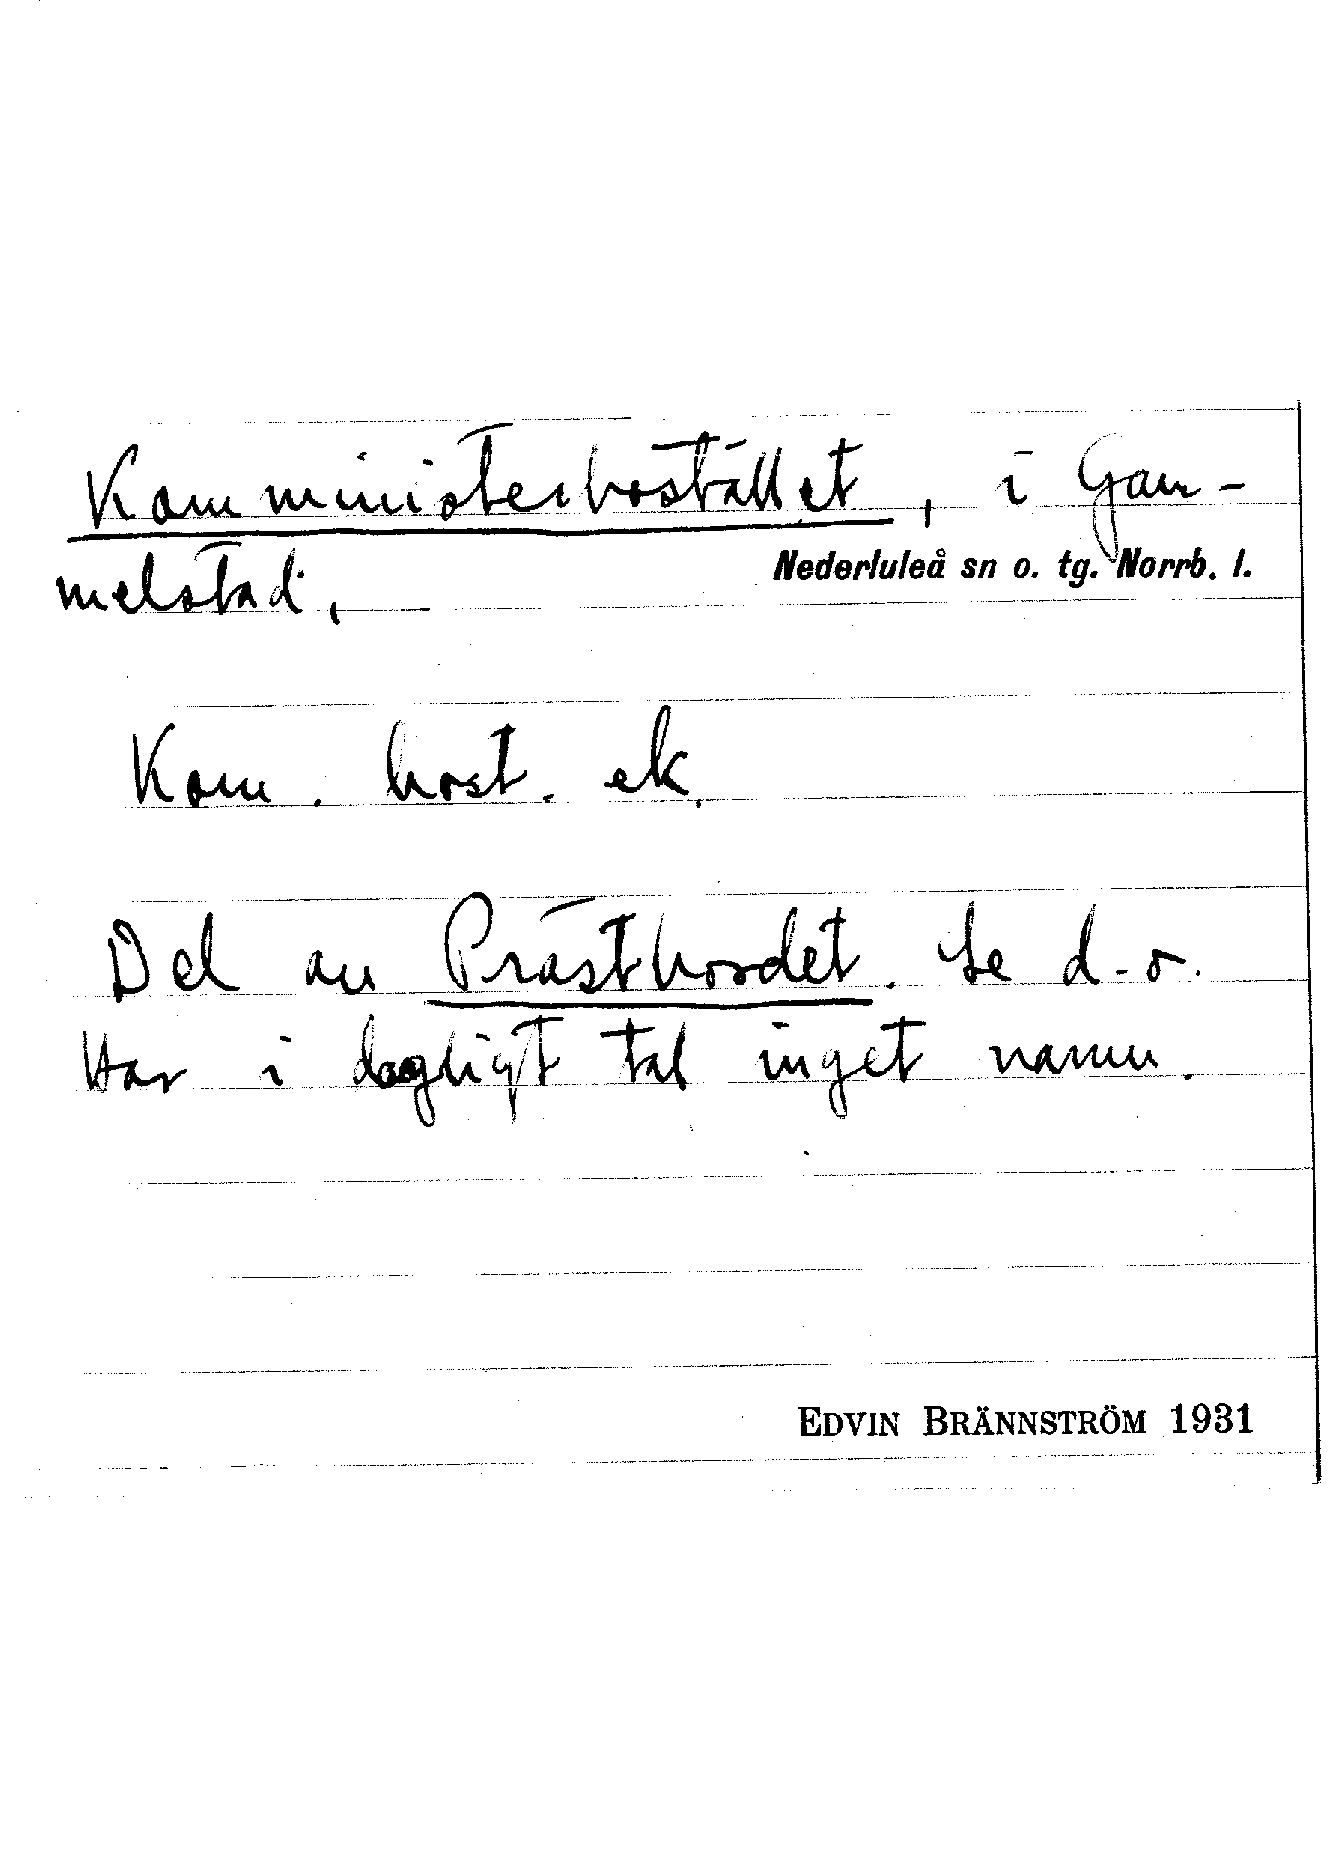 Komministerbostället, i Gam-
melstad,
Nederluleå sn o. tg. Norrb. l.
Kom. bost. ek.
Del av Prästbordet. Se d-o.
Har i dagligt tal inget namn.
EDVIN BRÄNNSTRÖM 1931